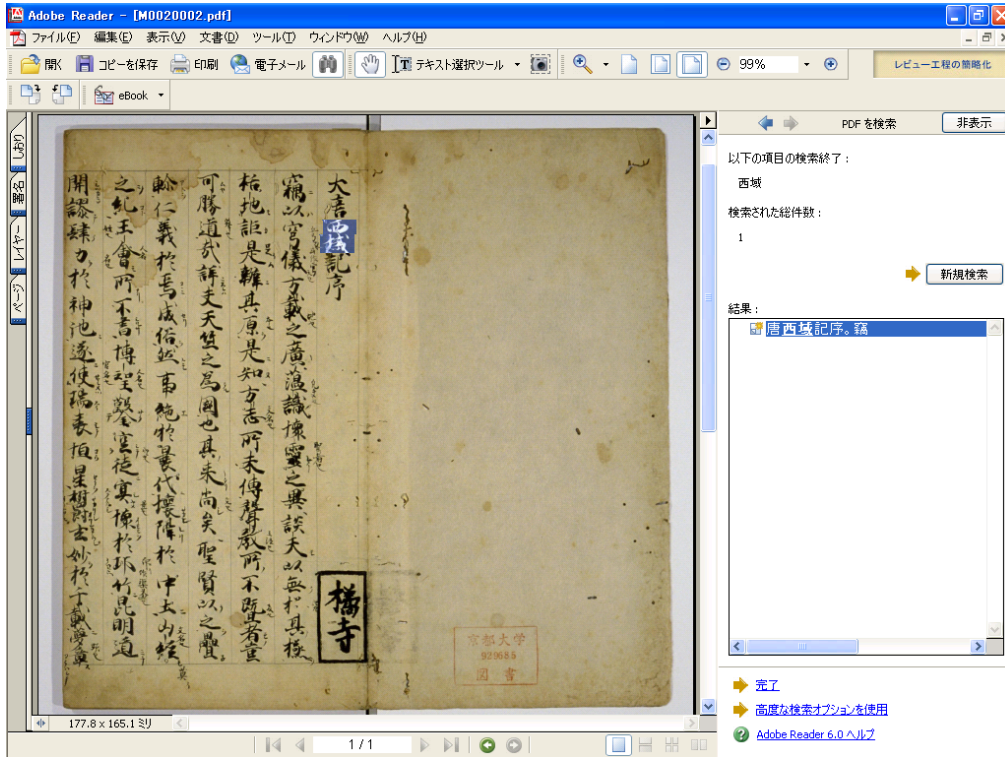 Adobe Reader - [M0020002.pdf]
ファイル(F) 編集(E) 表示(V) 文書(D) ツール(T) ウィンドウ(W) ヘルプ(H)
開く コピーを保存 印刷 電子メール テキスト選択ツール 99% レビュー工程の簡略化
eBook
しおり
署名
レイヤー
ページ
大唐西域記序
竊以穹儀方載之廣蘊識懷靈之異談天以無於其極
括地詎足辯其原是知方志所未傳聲教所不曁者豈
可勝道哉詳夫天竺之為國也其来尚矣聖賢以之疊
軫仁義於焉成俗然事絶於曩代壤隔於中土山経
之紀王會所不書博望鑿空徒寘懷於邛竹昆明道
閇謬肆力於神池遂使瑞表恒星欝玄妙於千載夢彰
橋寺
京都大学
929685
図書
PDF を検索 非表示
以下の項目の検索終了：
西域
検索された総件数：
1
新規検索
結果：
唐西域記序。竊
完了
高度な検索オプションを使用
Adobe Reader 6.0 ヘルプ
177.8 x 165.1 ミリ
1 / 1